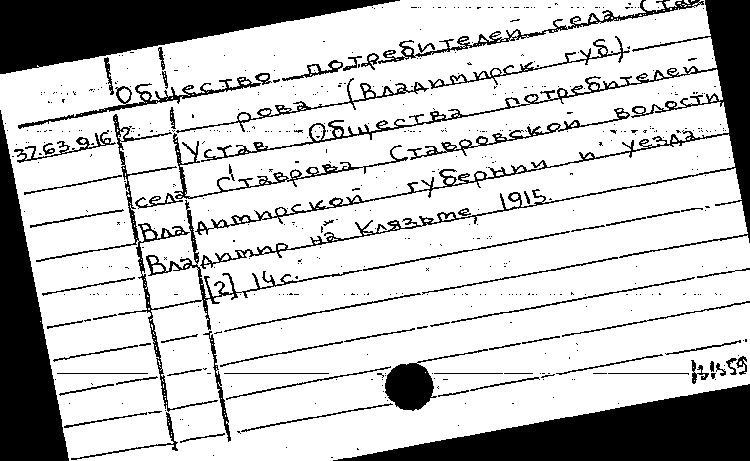 Общество потребителей села Став
рова. (Владимирск. губ.).
37.63.9.16 2 Устав Общества потребителей
села Ставрова, Ставровской волости,
Владимирской губернии и уезда.
Владимир на Клязьме, 1915.
[2], 14 с.